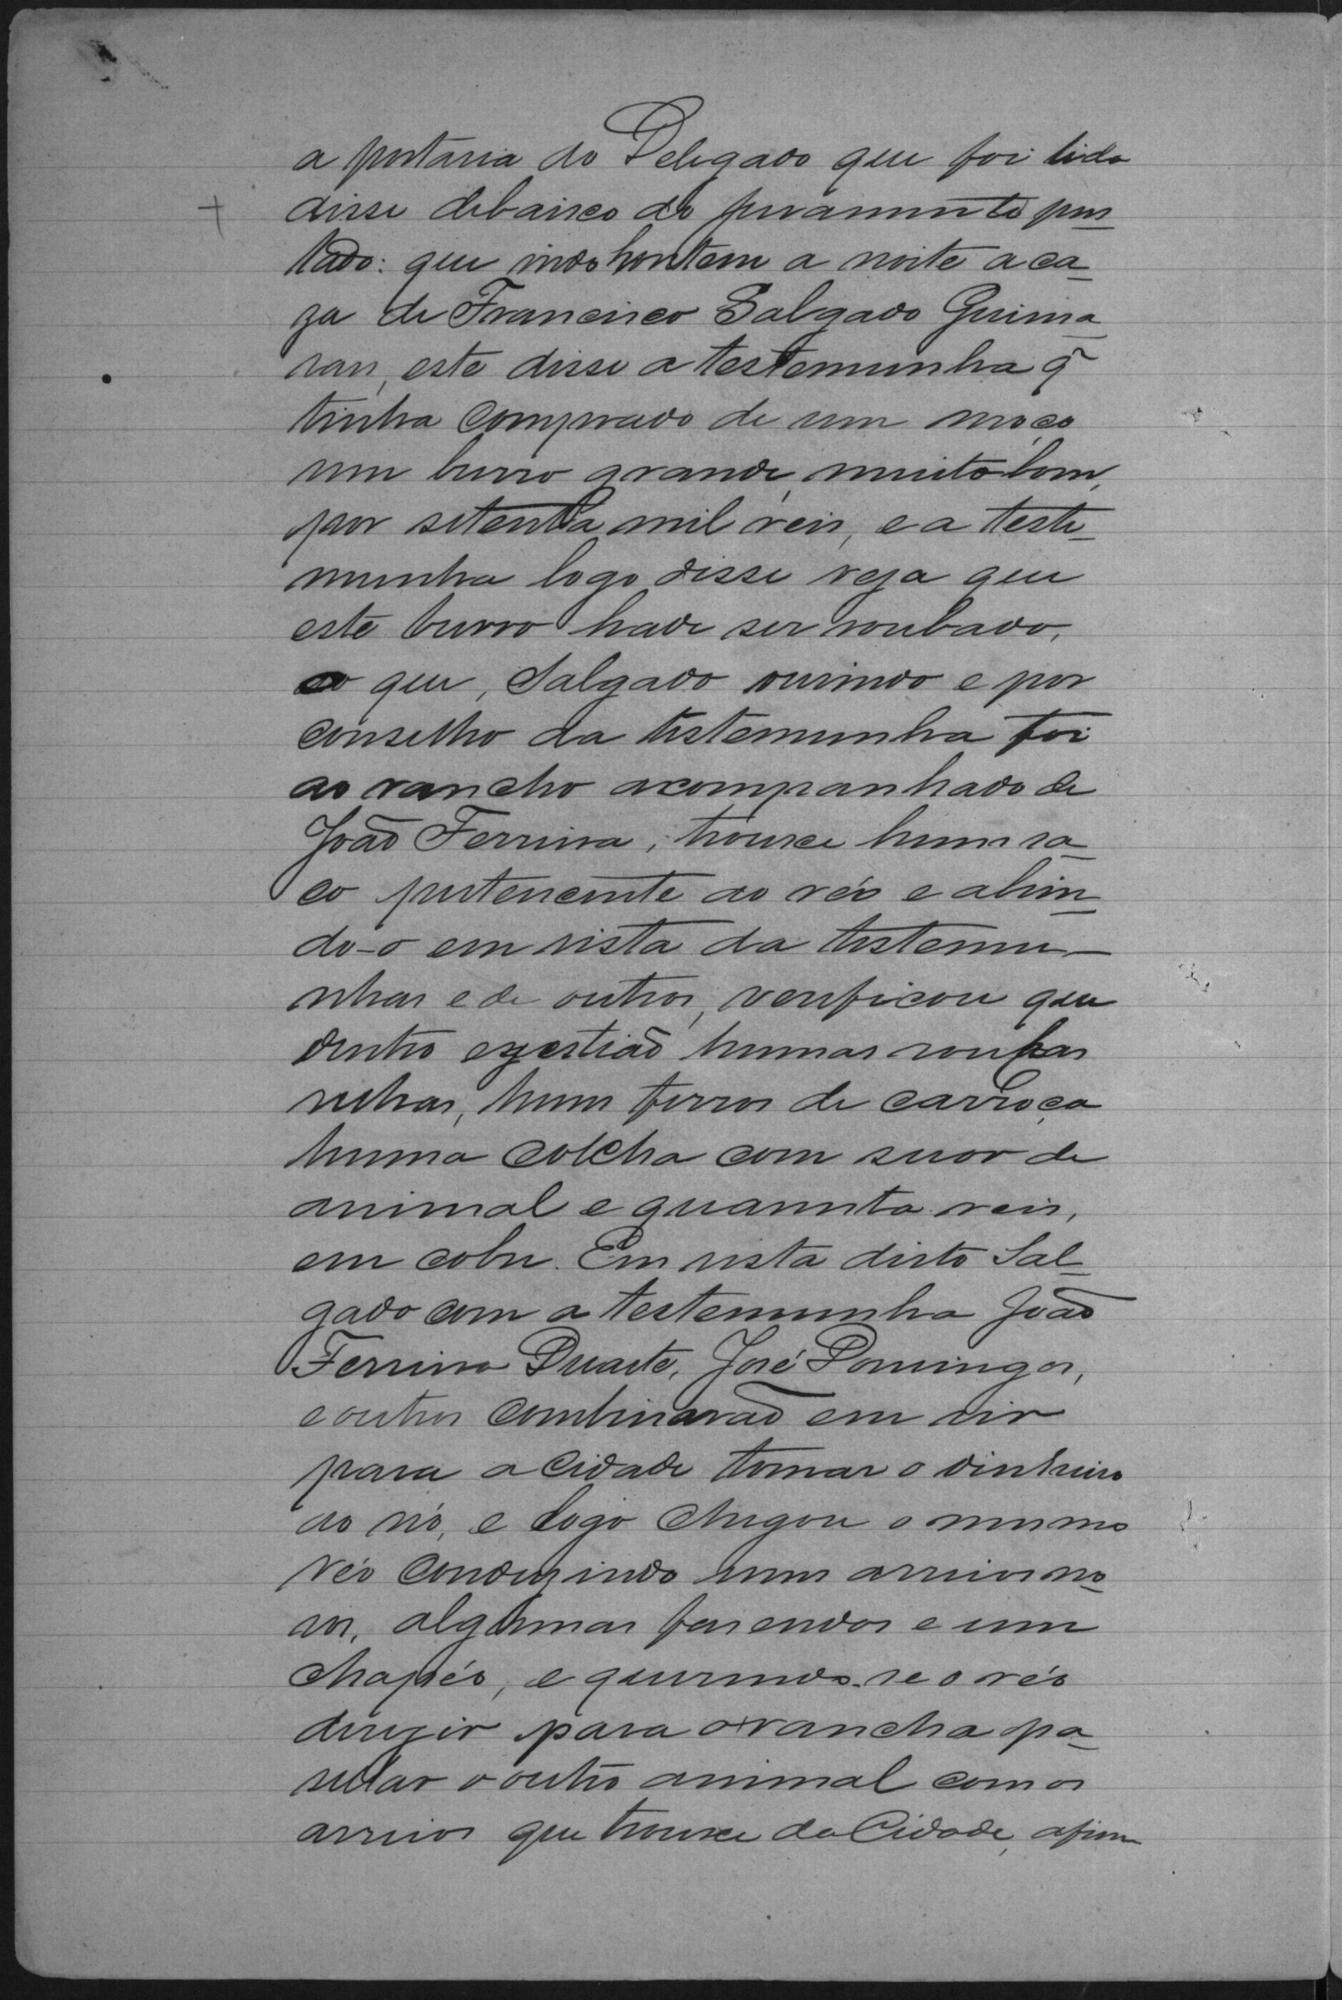 a portaria do Delegado que foi lida
disse debaixo do juramento pres
tado: que indo hontem a noite a ca
za de Francisco Salgado Guima
raes, este disse a testemunha q̃
tinha comprado de um moço
um burro grande, muito bom,
por setenta mil reis, e a teste
munha logo disse veja que
este burro hade ser roubado,
ao que, Salgado ouvindo e por
conselho da testemunha foi
ao rancho acompanhado de
João Ferreira, trouxe hum sa
co pertencente ao réo e abrin
do-o em vista da testemu
nhas e de outros, verificou que
dentro existião humas roupas
velhas, huns ferros de carroça
huma colcha com suor de
animal e quarenta reis,
em cobre. Em vista disto Sal
gado com a testemunha João
Ferreira Duarte, José Domingos,
e outros combinarão em vir
para a Cidade tomar o dinheiro
ao réo, e logo chegou o mesmo
réo conduzindo uns arreios no
vos, algumas fasendas e um
chapéo, e querendo-se o réo
dirigir para o rancho pa
sellar o outro animal com os
arreios que trouxe da Cidade, afim